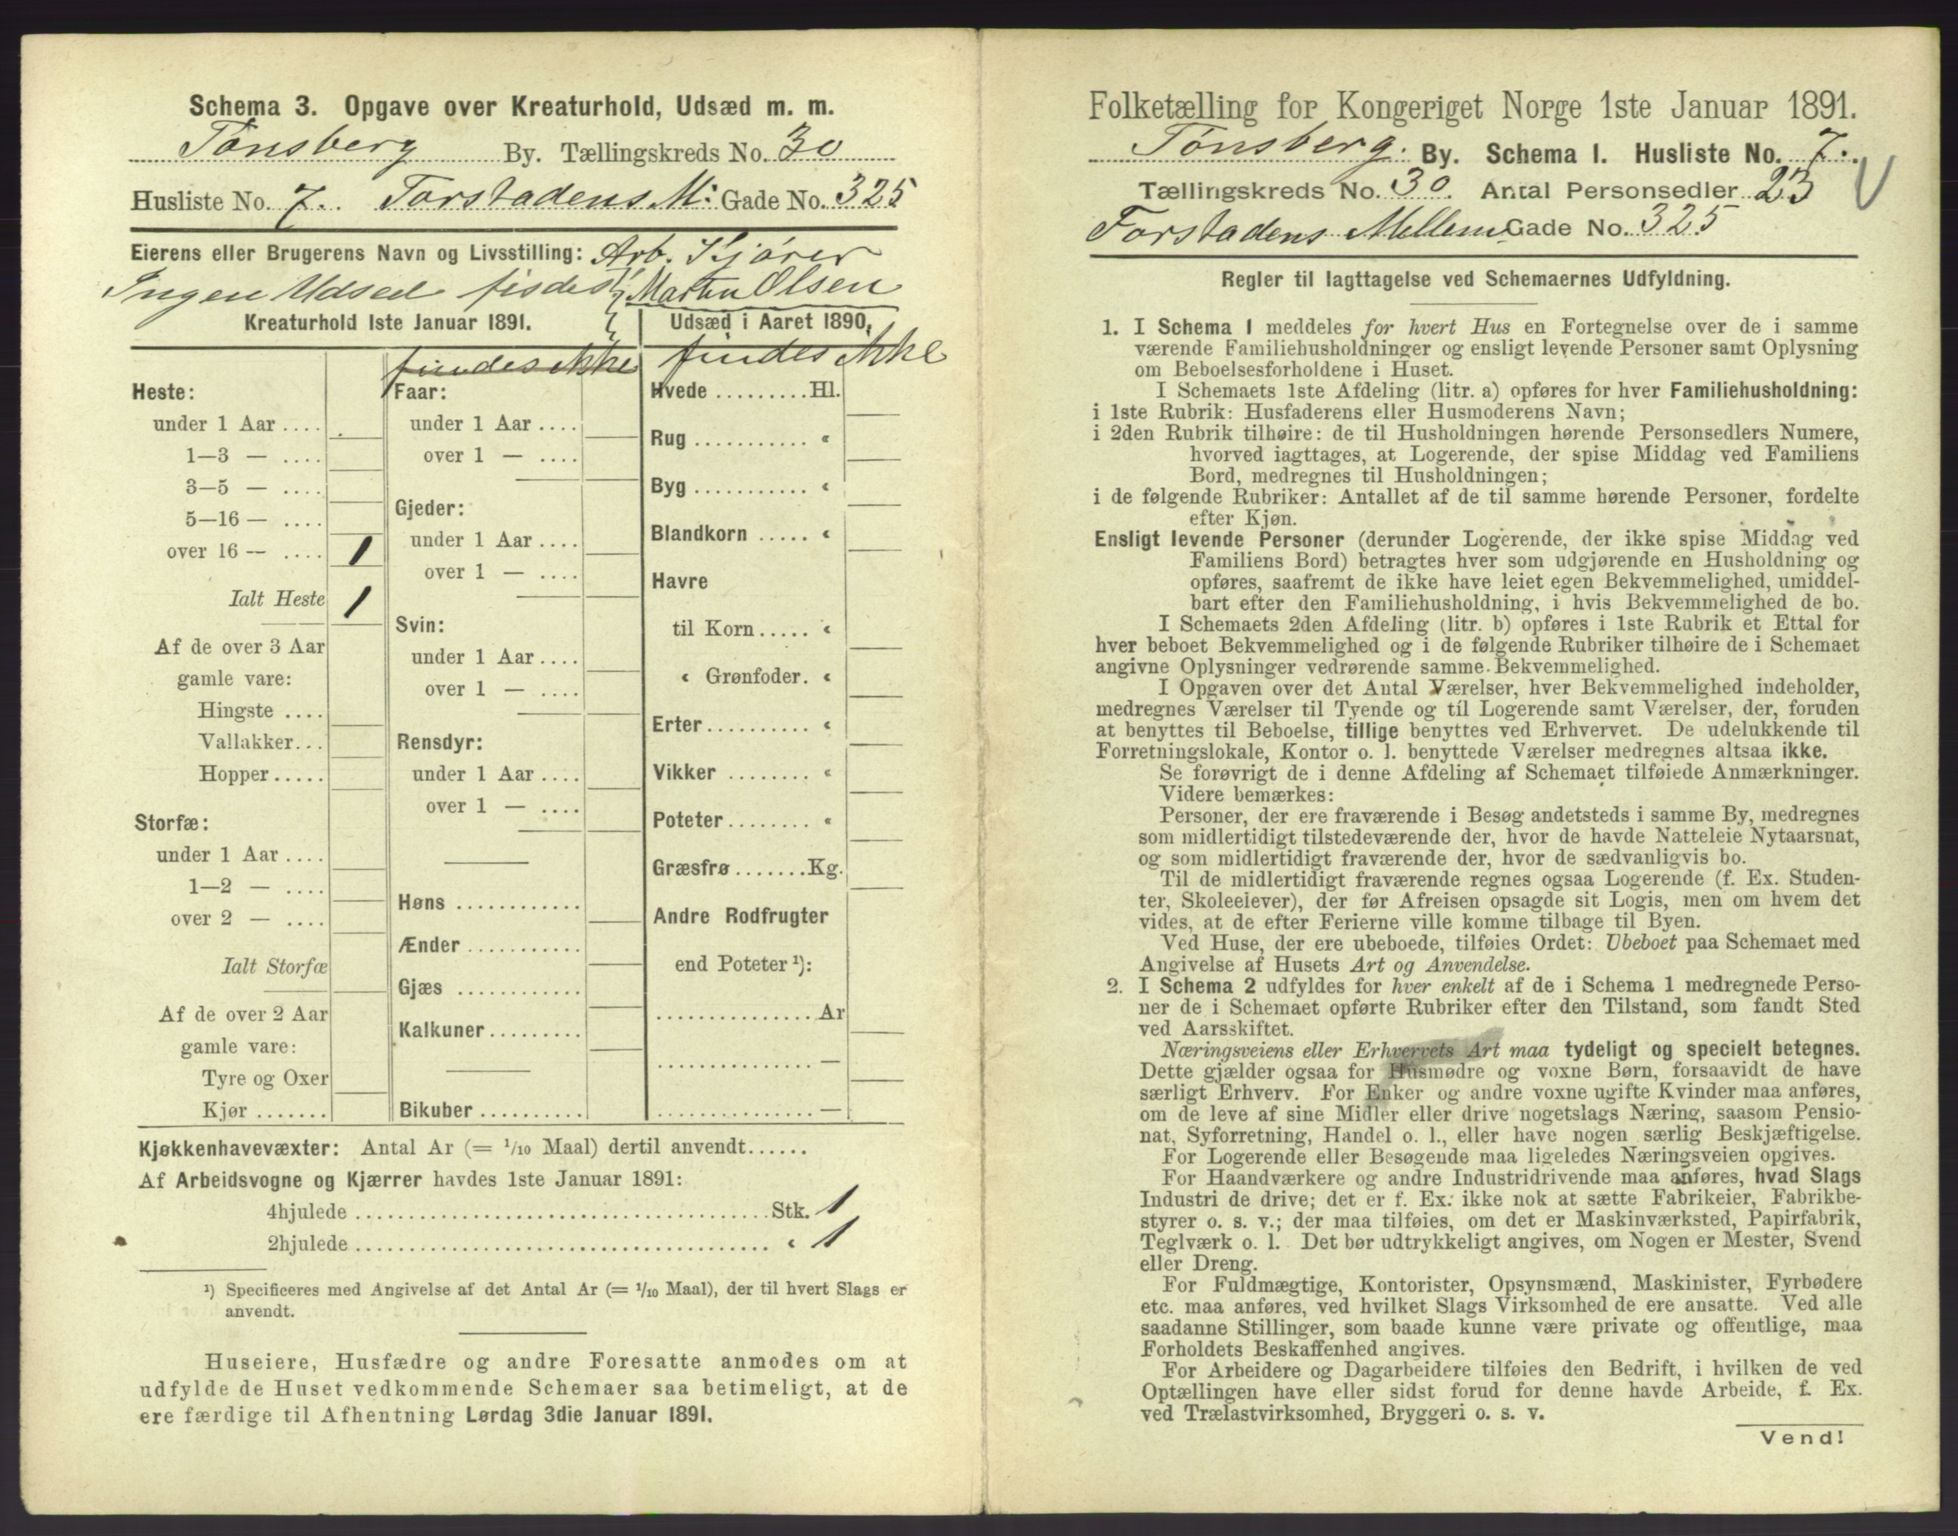 Schema 3. Opgave over Kreaturhold, Udsæd m. m.
Tønsberg By. Tællingskreds No. 30
Husliste No. 7. Forstadens M: Gade No. 325
Eierens eller Brugerens Navn og Livsstilling: Arb. Kjører
Ingen Udsed findes Martin Olsen
Kreaturhold 1ste Januar 1891.
Heste:
under 1 Aar ....
1—3 — ....
3—5 — ....
5—16 — ....
over 16 — .... 1
Ialt Heste 1
Af de over 3 Aar
gamle vare:
Hingste ....
Vallakker...
Hopper.....
Storfæ:
under 1 Aar ....
1—2 — ....
over 2 — ....
Ialt Storfæ
Af de over 2 Aar
gamle vare:
Tyre og Oxer
Kjør .......
findes ikke
Faar:
under 1 Aar ....
over 1 — ....
Gjeder:
under 1 Aar ....
over 1 — ....
Svin:
under 1 Aar ....
over 1 — ....
Rensdyr:
under 1 Aar ....
over 1 — ....
Høns ............
Ænder ...........
Gjæs ............
Kalkuner.........
Bikuber ..........
Udsæd i Aaret 1890.
findes ikke
Hvede .........Hl.
Rug ........... «
Byg ........... «
Blandkorn ..... «
Havre
til Korn ..... «
« Grønfoder. «
Erter.......... «
Vikker ........ «
Poteter........ «
Græsfrø .......Kg.
Andre Rodfrugter
end Poteter ¹):
...............Ar
............... —
...............—
Kjøkkenhavevæxter: Antal Ar (= 1/10 Maal) dertil anvendt......
Af Arbeidsvogne og Kjærrer havdes 1ste Januar 1891:
4hjulede ........................................Stk. 1
2hjulede ........................................ « 1
¹) Specificeres med Angivelse af det Antal Ar (= 1/10 Maal), der til hvert Slags er
anvendt.
Huseiere, Husfædre og andre Foresatte anmodes om at
udfylde de Huset vedkommende Schemaer saa betimeligt, at de
ere færdige til Afhentning Lørdag 3die Januar 1891.
Folketælling for Kongeriget Norge 1ste Januar 1891.
Tønsberg. By. Schema 1. Husliste No. 7.
Tællingskreds No. 30. Antal Personsedler 23
Forstadens Mellem Gade No. 325
Regler til Iagttagelse ved Schemaernes Udfyldning.
1. I Schema 1 meddeles for hvert Hus en Fortegnelse over de i samme
værende Familiehusholdninger og ensligt levende Personer samt Oplysning
om Beboelsesforholdene i Huset.
I Schemaets 1ste Afdeling (litr. a) opføres for hver Familiehusholdning:
i 1ste Rubrik: Husfaderens eller Husmoderens Navn;
i 2den Rubrik tilhøire: de til Husholdningen hørende Personsedlers Numere,
hvorved iagttages, at Logerende, der spise Middag ved Familiens
Bord, medregnes til Husholdningen;
i de følgende Rubriker: Antallet af de til samme hørende Personer, fordelte
efter Kjøn.
Ensligt levende Personer (derunder Logerende, der ikke spise Middag ved
Familiens Bord) betragtes hver som udgjørende en Husholdning og
opføres, saafremt de ikke have leiet egen Bekvemmelighed, umiddel-
bart efter den Familiehusholdning, i hvis Bekvemmelighed de bo.
I Schemaets 2den Afdeling (litr. b) opføres i 1ste Rubrik et Ettal for
hver beboet Bekvemmelighed og i de følgende Rubriker tilhøire de i Schemaet
angivne Oplysninger vedrørende samme Bekvemmelighed.
I Opgaven over det Antal Værelser, hver Bekvemmelighed indeholder,
medregnes Værelser til Tyende og til Logerende samt Værelser, der, foruden
at benyttes til Beboelse, tillige benyttes ved Erhvervet. De udelukkende til
Forretningslokale, Kontor o. l. benyttede Værelser medregnes altsaa ikke.
Se forøvrigt de i denne Afdeling af Schemaet tilføiede Anmærkninger.
Videre bemærkes:
Personer, der ere fraværende i Besøg andetsteds i samme By, medregnes
som midlertidigt tilstedeværende der, hvor de havde Natteleie Nytaarsnat,
og som midlertidigt fraværende der, hvor de sædvanligvis bo.
Til de midlertidigt fraværende regnes ogsaa Logerende (f. Ex. Studen-
ter, Skoleelever), der før Afreisen opsagde sit Logis, men om hvem det
vides, at de efter Ferierne ville komme tilbage til Byen.
Ved Huse, der ere ubeboede, tilføies Ordet: Ubeboet paa Schemaet med
Angivelse af Husets Art og Anvendelse.
2. I Schema 2 udfyldes for hver enkelt af de i Schema 1 medregnede Perso-
ner de i Schemaet opførte Rubriker efter den Tilstand, som fandt Sted
ved Aarsskiftet.
Næringsveiens eller Erhvervets Art maa tydeligt og specielt betegnes.
Dette gjælder ogsaa for Husmødre og voxne Børn, forsaavidt de have
særligt Erhverv. For Enker og andre voxne ugifte Kvinder maa anføres,
om de leve af sine Midler eller drive nogetslags Næring, saasom Pensio-
nat, Syforretning, Handel o. l., eller have nogen særlig Beskjæftigelse.
For Logerende eller Besøgende maa ligeledes Næringsveien opgives.
For Haandværkere og andre Industridrivende maa anføres, hvad Slags
Industri de drive; det er f. Ex. ikke nok at sætte Fabrikeier, Fabrikbe-
styrer o. s. v.; der maa tilføies, om det er Maskinværksted, Papirfabrik,
Teglværk o. l. Det bør udtrykkeligt angives, om Nogen er Mester, Svend
eller Dreng.
For Fuldmægtige, Kontorister, Opsynsmænd, Maskinister, Fyrbødere
etc. maa anføres, ved hvilket Slags Virksomhed de ere ansatte. Ved alle
saadanne Stillinger, som baade kunne være private og offentlige, maa
Forholdets Beskaffenhed angives.
For Arbeidere og Dagarbeidere tilføies den Bedrift, i hvilken de ved
Optællingen have eller sidst forud for denne havde Arbeide, f. Ex.
ved Trælastvirksomhed, Bryggeri o. s. v.
Vend!